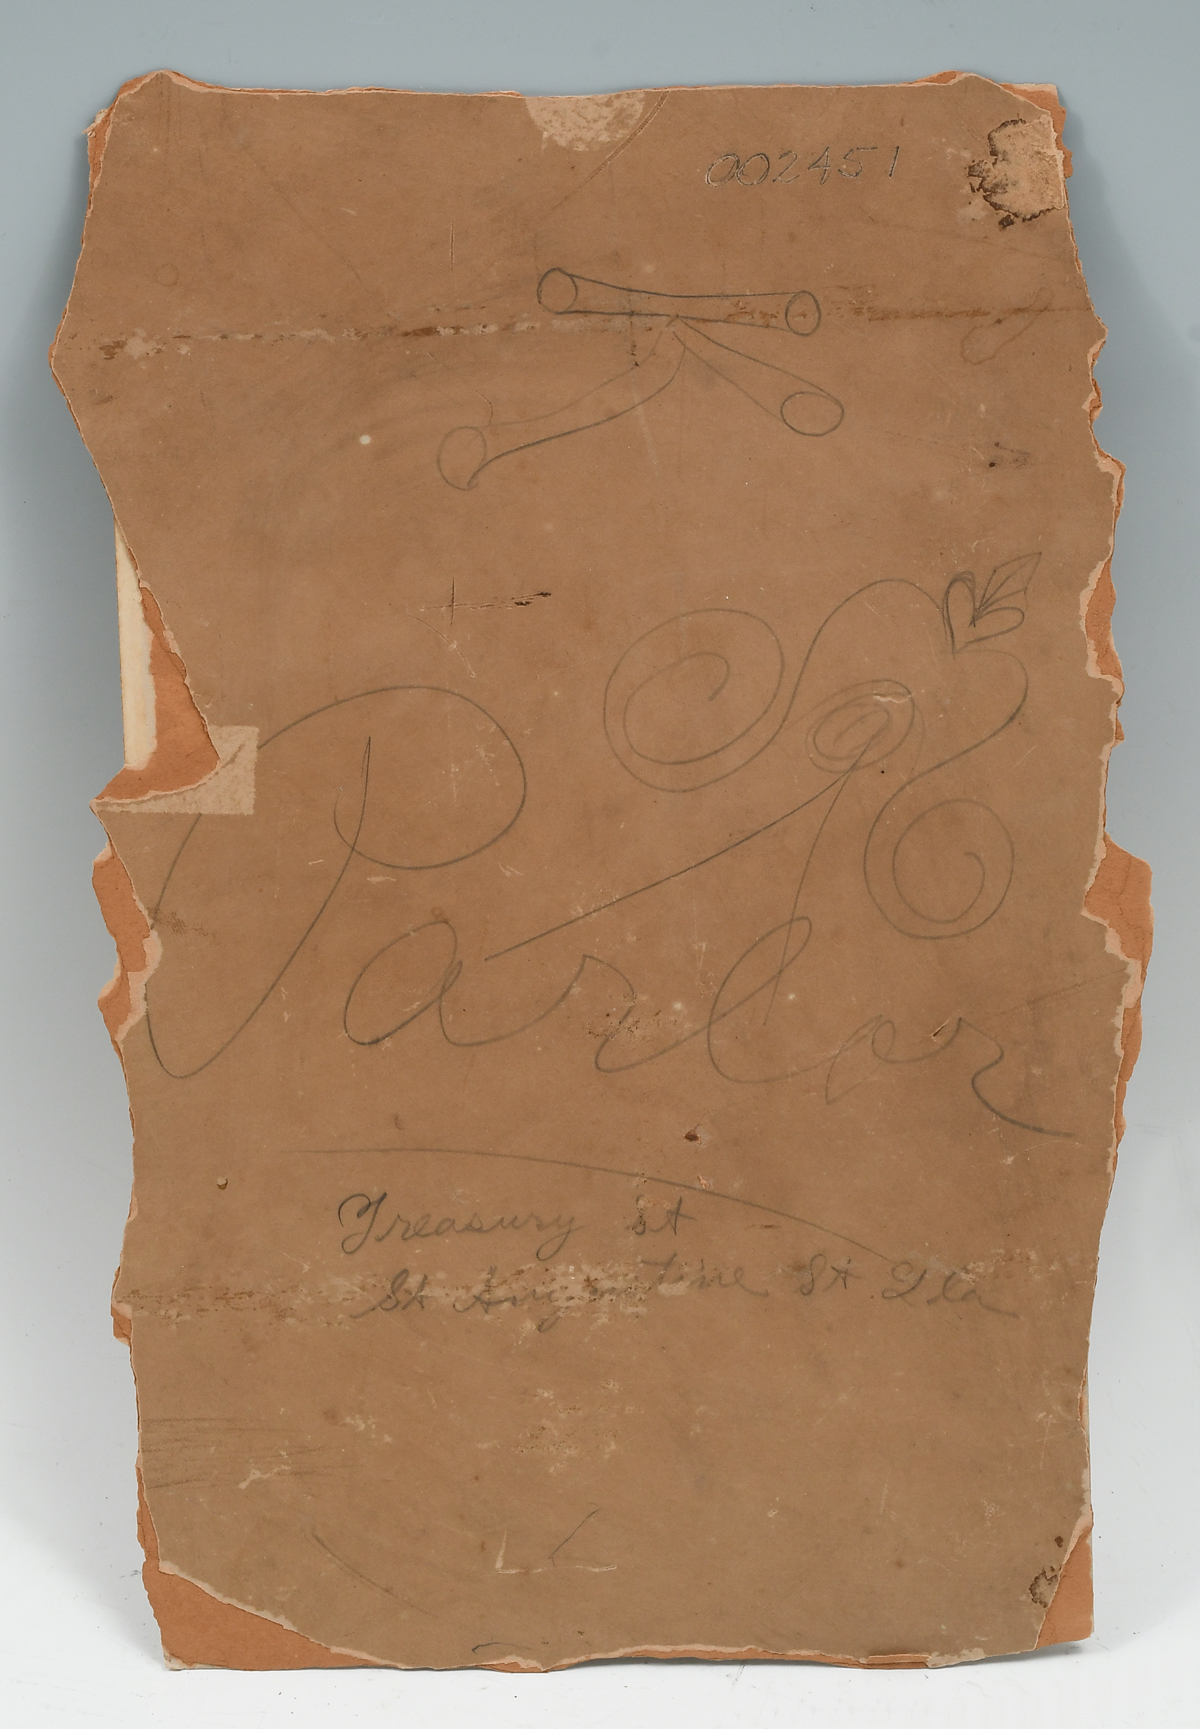 002451
Parlor
Treasury St
St Augustine St. Fla